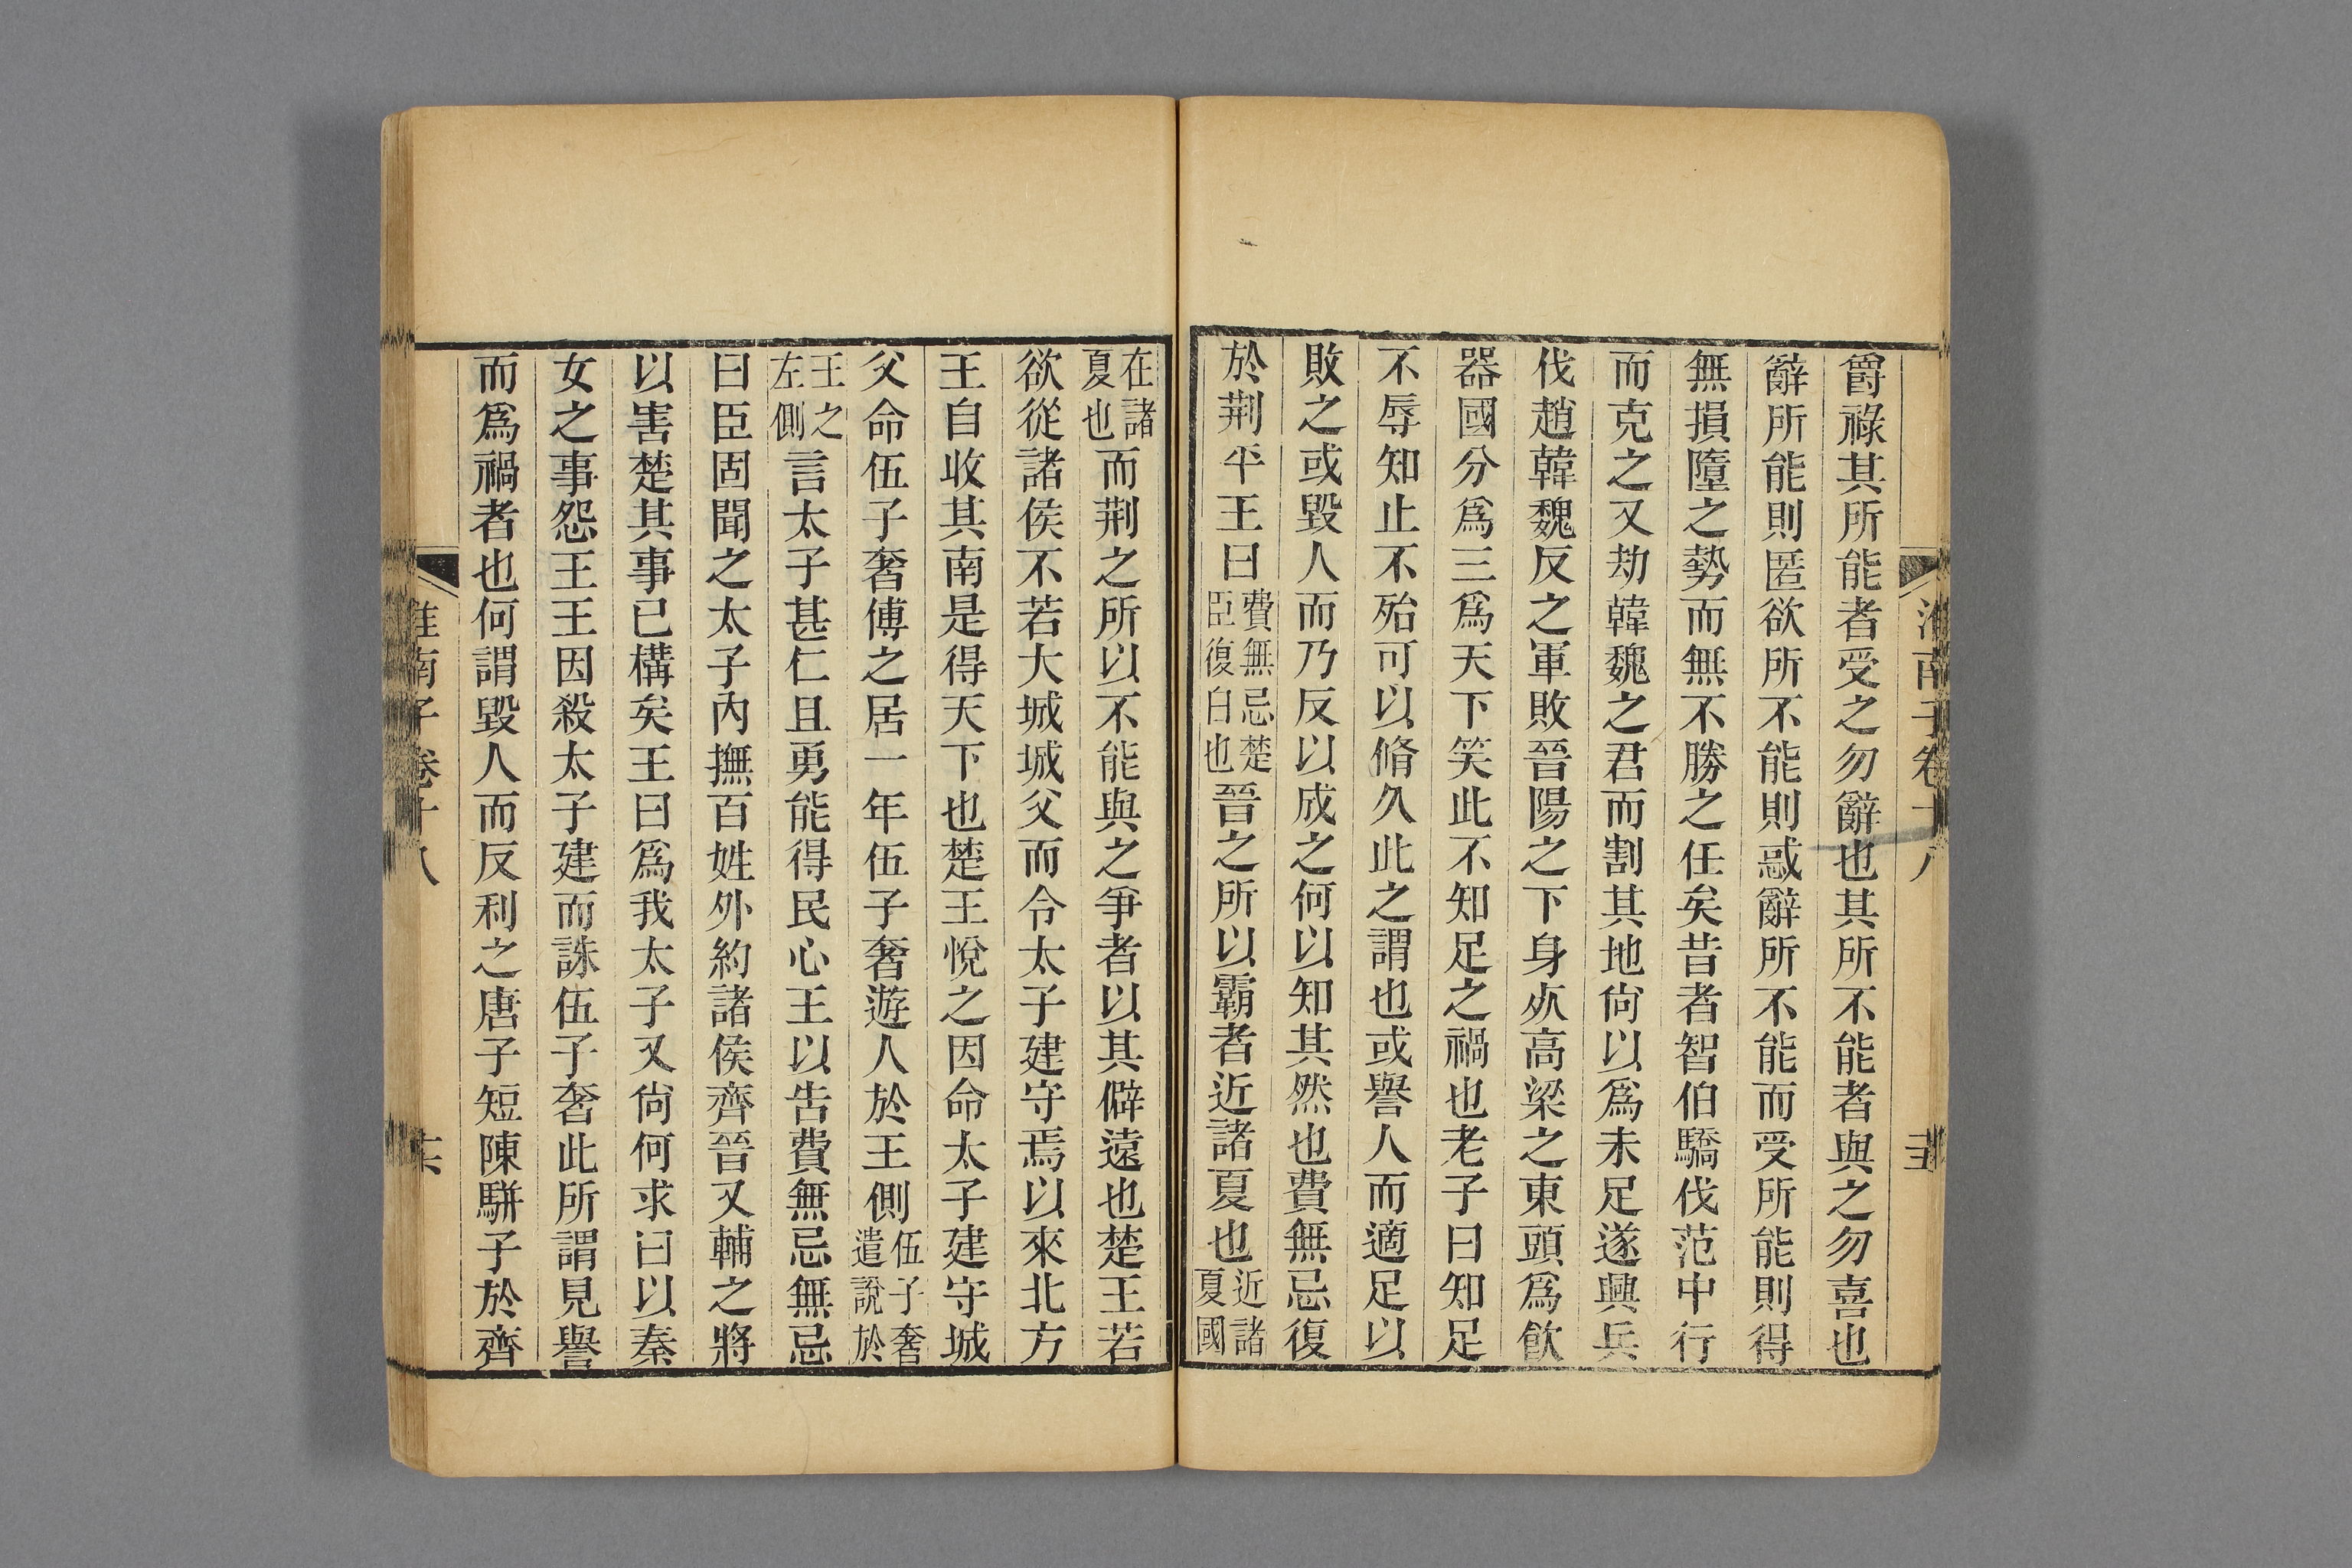 淮南子卷十八
爵祿其所能者受之勿辭也其所不能者與之勿喜也
辭所能則匿欲所不能則惑辭所不能而受所能則得
無損墮之勢而無不勝之任矣昔者智伯驕伐范中行
而克之又劫韓魏之君而割其地尙以爲未足遂興兵
伐趙韓魏反之軍敗晉陽之下身死高梁之東頭爲飮
器國分爲三爲天下笑此不知足之禍也老子曰知足
不辱知止不殆可以脩久此之謂也或譽人而適足以
敗之或毀人而乃反以成之何以知其然也費無忌復
於荆平王曰費無忌楚臣復白也晉之所以霸者近諸夏也近諸夏國
在諸夏也而荆之所以不能與之爭者以其僻遠也楚王若
欲從諸侯不若大城城父而令太子建守焉以來北方
王自收其南是得天下也楚王悅之因命太子建守城
父命伍子奢傅之居一年伍子奢遊人於王側伍子奢遣說於
王之左側言太子甚仁且勇能得民心王以吿費無忌無忌
曰臣固聞之太子內撫百姓外約諸侯齊晉又輔之將
以害楚其事已構矣王曰爲我太子又尙何求曰以秦
女之事怨王王因殺太子建而誅伍子奢此所謂見譽
而爲禍者也何謂毀人而反利之唐子短陳駢子於齊
淮南子卷十八